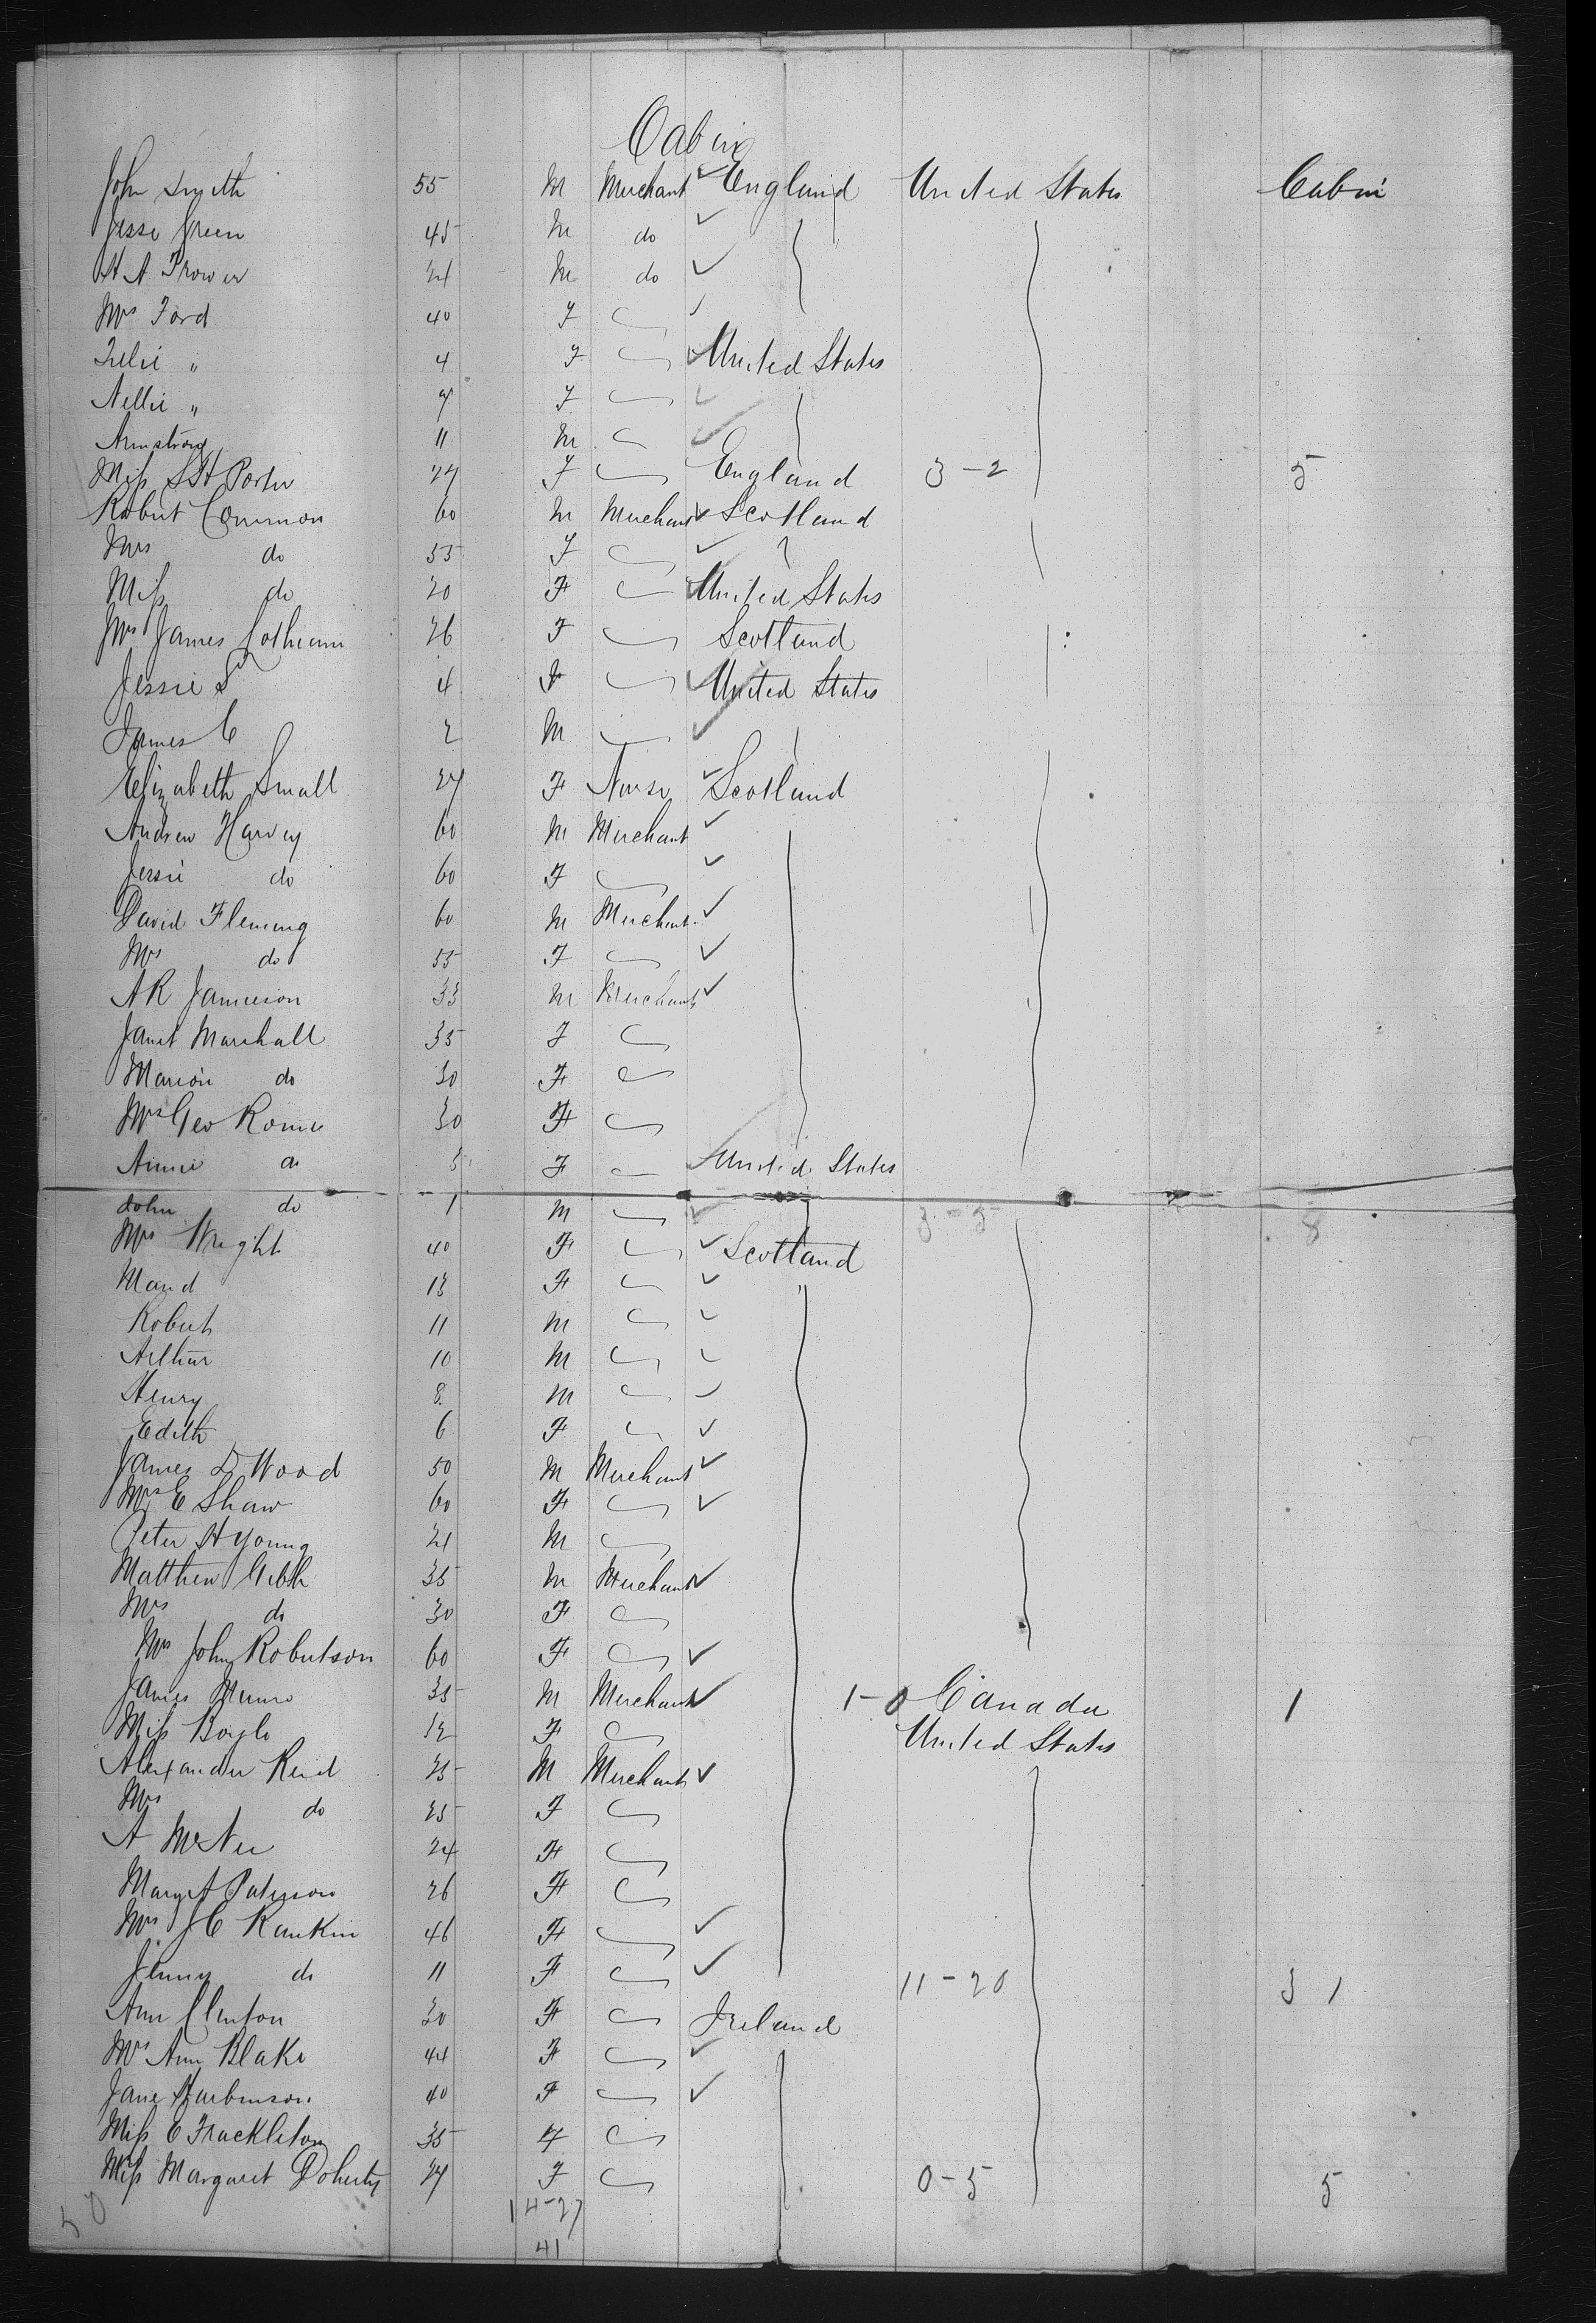 Cabin
John Smith 55 M Merchant England United States Cabin
Jesse Green 45 M do
H A Trower 24 M do
Mrs Ford 40 F
" 4 F United States
Nellie " 7 F
Armstrong 11 M
Miss S H Porter 27 F England 3-2 5
Robert Common 60 M Merchant Scotland
Mrs do 55 F
Miss do 20 F United States
Mrs James Lothian 26 F Scotland
Jessie S 4 F United States
James C 2 M
Elizabeth Small 27 F Nurse Scotland
Andrew Harvey 60 M Merchant
Jessie do 60 F
David Fleming 60 M Merchant
Mrs do 55 F
A R Jamieson 33 M Merchant
Janet Marshall 35 F
Marion do 30 F
Mrs Geo Rome 30 F
Annie do 3 F United States
John do 1 M 3-5 8
Mrs Wright 40 F Scotland
Maud 13 F
Robert 11 M
Arthur 10 M
Henry 8 M
Edith 6 F
James D Wood 50 M Merchant
Mrs E Shaw 60 F
Peter H Young 21 M
Matthew Gibb 35 M Merchant
Mrs do 30 F
Mrs John Robertson 60 F
James Munro 35 M Merchant 1-0 Canada 1
Miss Boyle 12 F United States
Alexander Reid 25 M Merchant
Mrs do 25 F
A McNee 24 F
Margt Paterson 26 F
Mrs J C Rankin 46 F
Jenny do 11 F 11-20 31
Ann Clenton 30 F Ireland
Mrs Ann Blake 44 F
Jane Harbinson 40 F
Miss E Frackleton 35 F
Miss Margaret Doherty 27 F 0-5 5
50 14-27
41